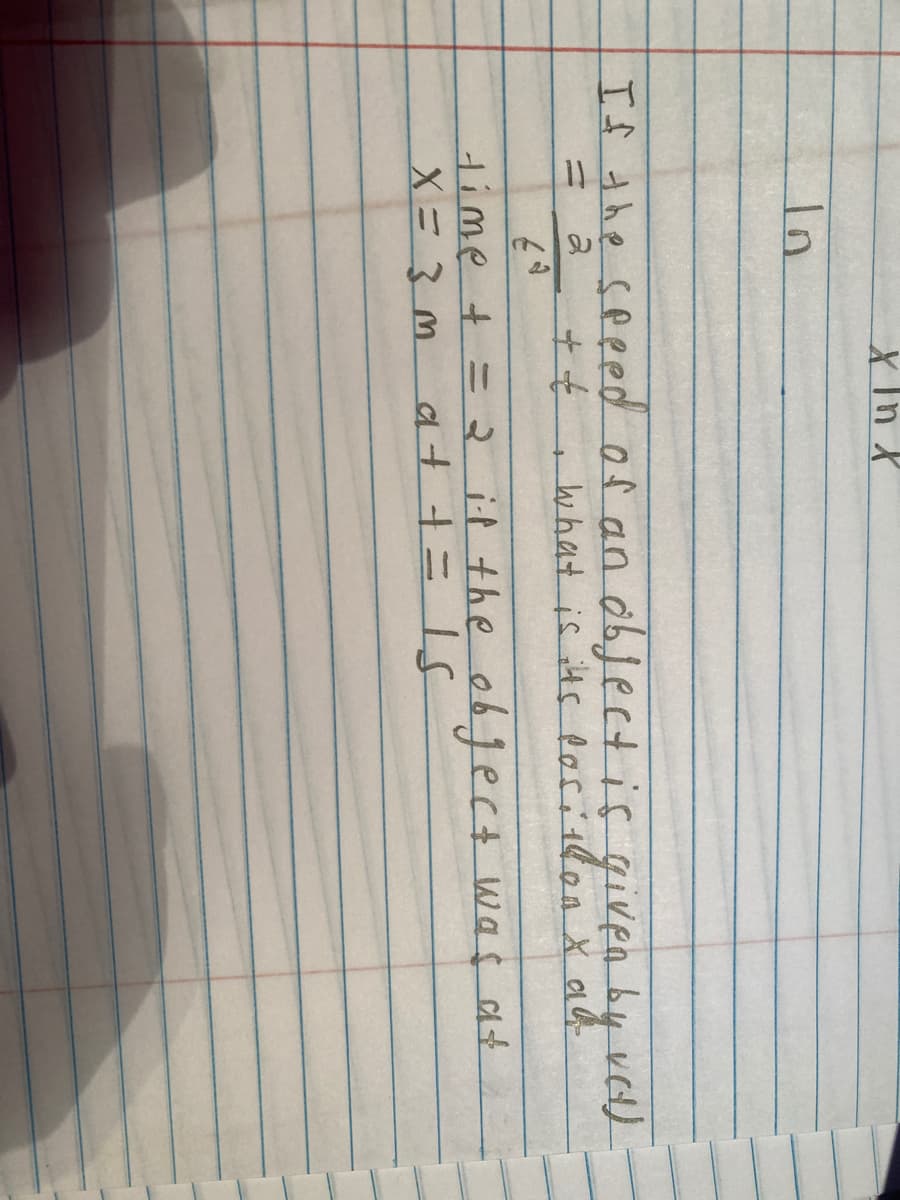 x ln x
ln
If the speed of an object is given by v(t)
= 2/t² + t , what is its position x at
time t = 2 if the object was at
x = 3 m at t = 1s